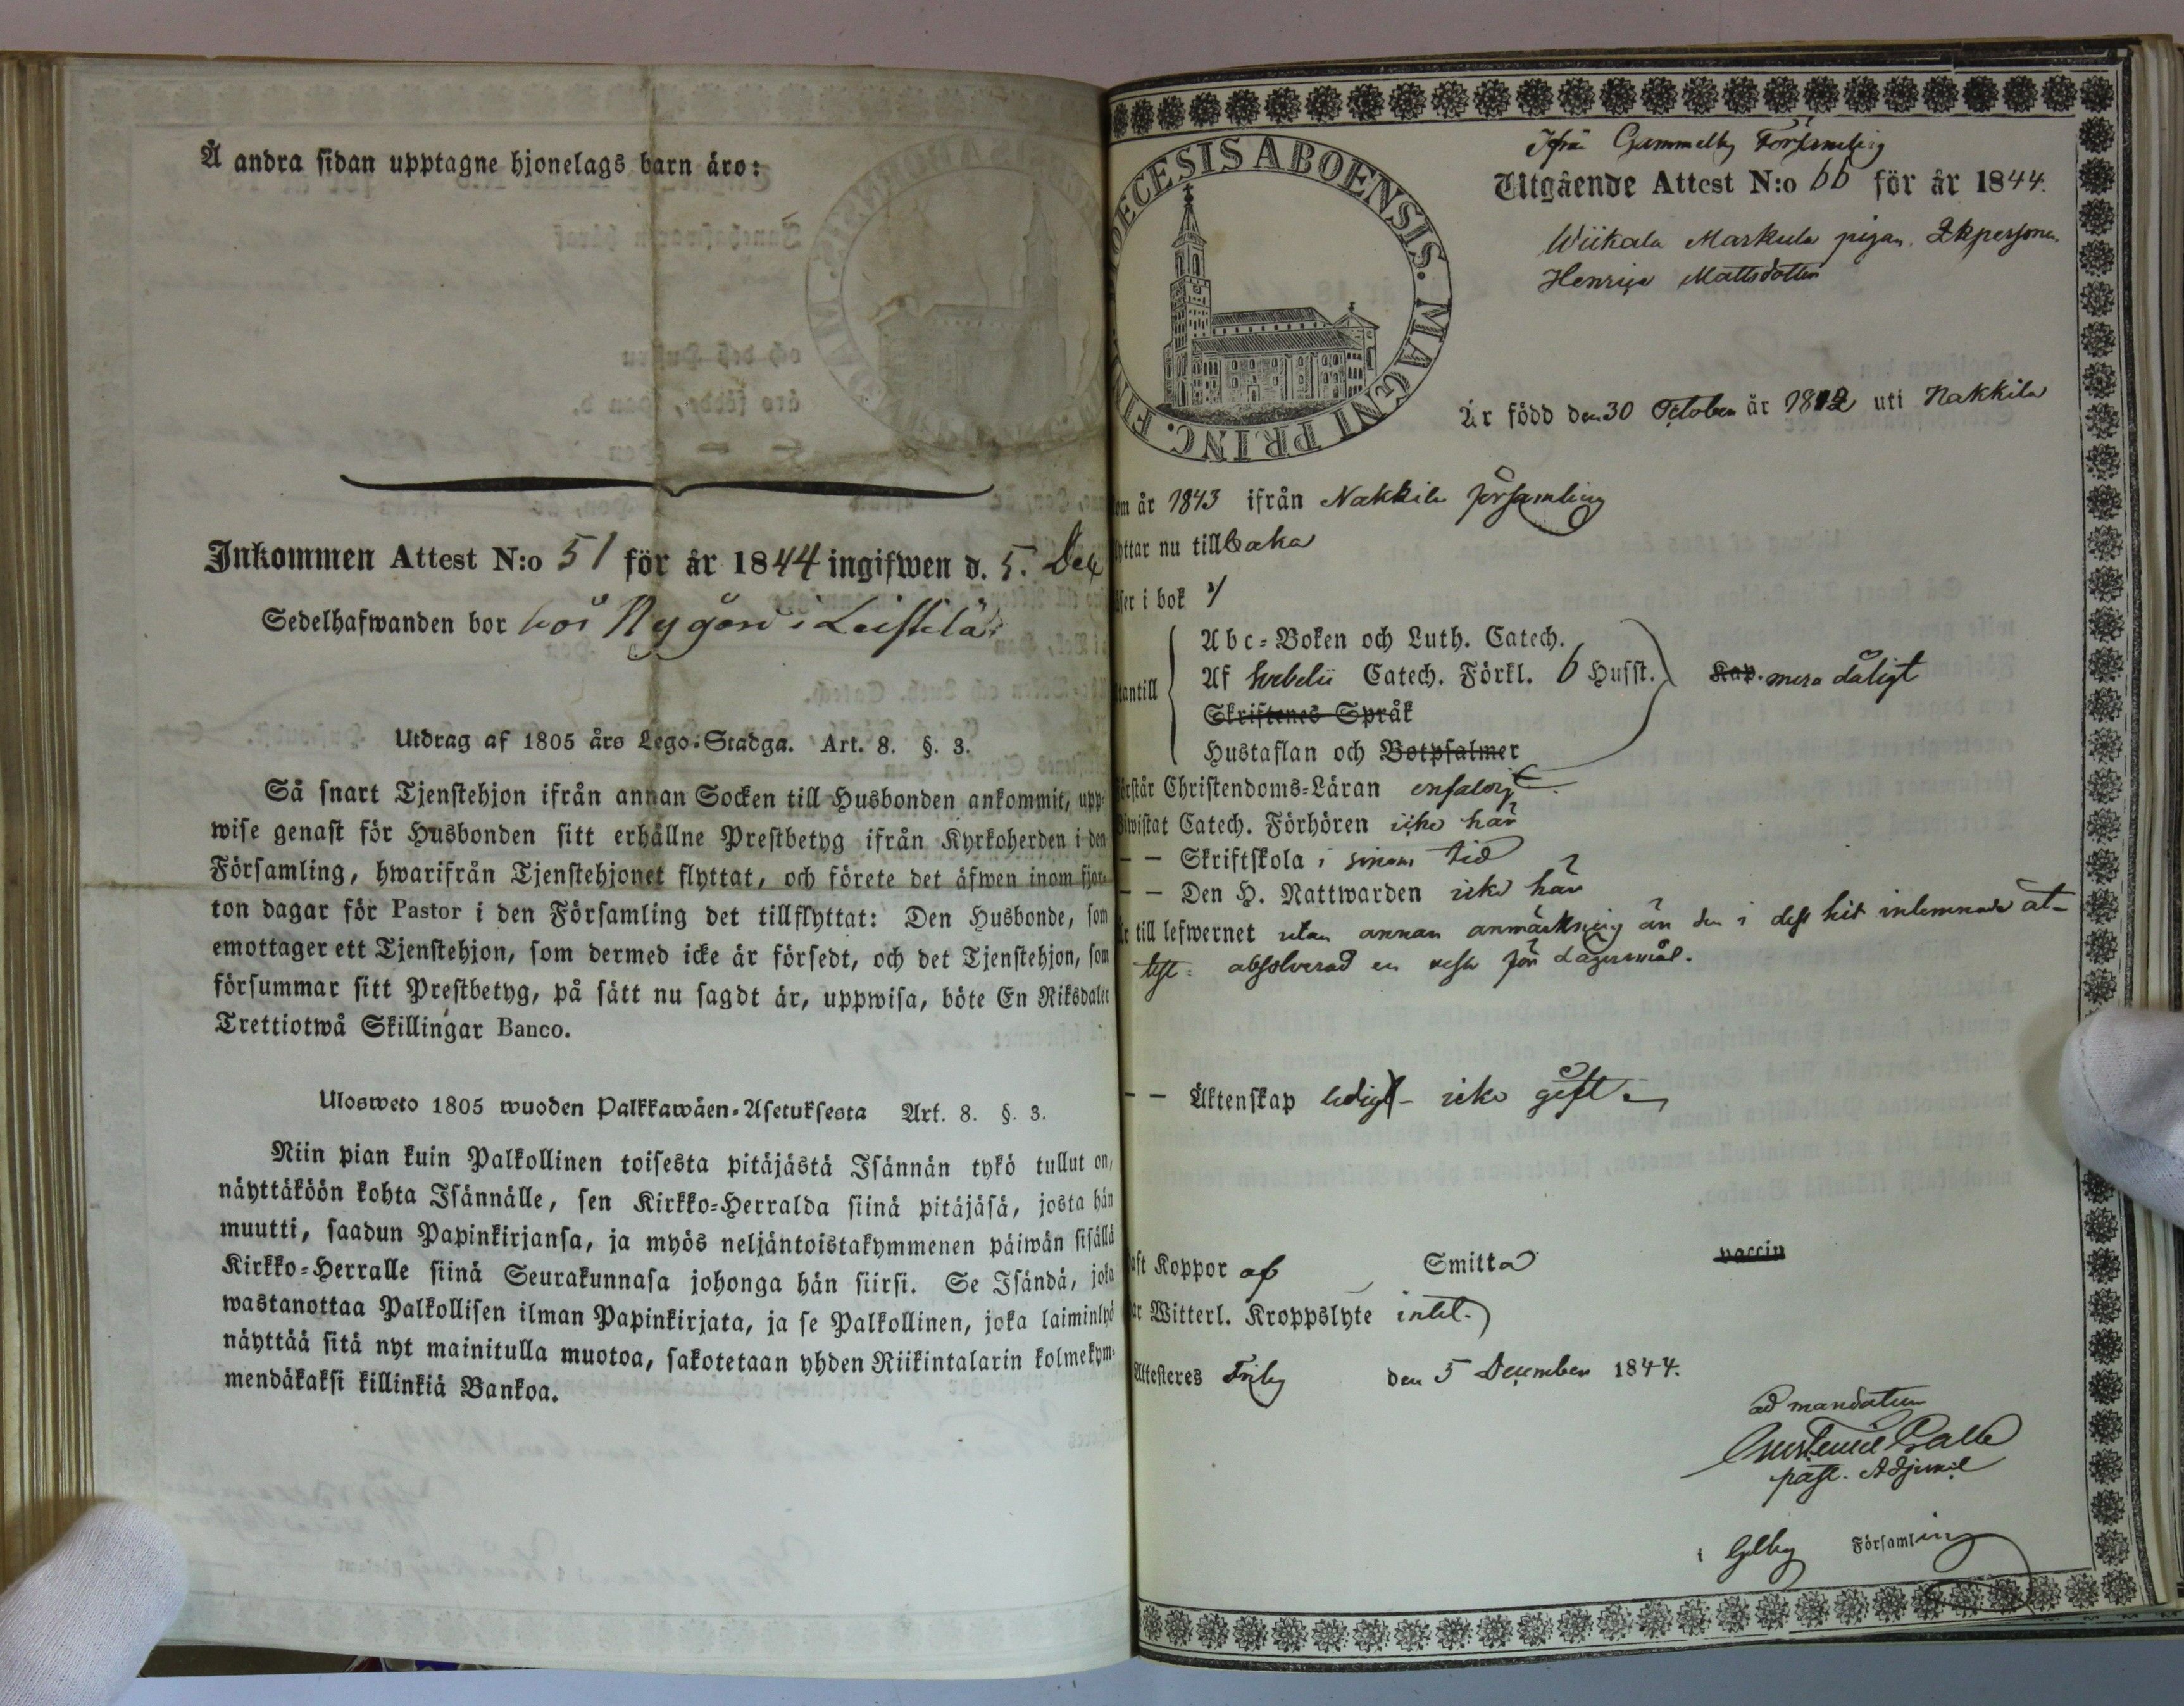 Å andra sidan upptagne hjonelags barn äro:
Inkommen Attest N:o 51 för år 1844 ingifwen d. 5. Dec
Sedelhafwanden bor hos Nygård i Leistilä.
Utdrag af 1805 års Lego-Stadga. Art. 8. §. 3.
Så snart Tjenstehjon ifrån annan Socken till Husbonden ankommit, upp-
wise genast för Husbonden sitt erhållne Prestbetyg ifrån Kyrkoherden i den
Församling, hwarifrån Tjenstehjonet flyttat, och förete det äfwen inom fjor-
ton dagar för Pastor i den Församling det tillflyttat: Den Husbonde, som
emottager ett Tjenstehjon, som dermed icke är försedt, och det Tjenstehjon, som
försummar sitt Prestbetyg, på sätt nu sagdt är, uppwisa, böte En Riksdaler
Trettiotwå Skillingar Banco.
Ulosweto 1805 wuoden Palkkawäen-Asetuksesta Art. 8. §. 3.
Niin pian kuin Palkollinen toisesta pitäjästä Isännän tykö tullut on,
näyttäköön kohta Isännälle, sen Kirkko-Herralda siinä pitäjäsä, josta hän
muutti, saadun Papinkirjansa, ja myös neljäntoistakymmenen päiwän sisällä
Kirkko-Herralle siinä Seurakunnasa johonga hän siirsi. Se Isändä, joka
wastanottaa Palkollisen ilman Papinkirjata, ja se Palkollinen, joka laiminlyö
näyttää sitä nyt mainitulla muotoa, sakotetaan yhden Riikintalarin kolmekym-
mendäkaksi killinkiä Bankoa.
DIOECESIS ABOENSIS. MAGNI PRINC. FIN
Ifrån Gammelby Församling
Utgående Attest N:o 66 för år 1844.
Wiikala Markula pigan
Henrica Mattsdotter
Är född den 30 October år 1812 uti Nakkila
om år 1843 ifrån Nakkila församling
yttar nu tillbaka
ser i bok
tantill
Abc-Boken och Luth. Catech.
Af Svebelii Catech. Förkl. 6 Husst. Kap. mera dåligt
Skriftenes Språk
Hustaflan och Botpsalmer
örstår Christendoms-Läran enfaldigt
Biwistat Catech. Förhören icke här
— — Skriftskola i sinom tid
— — Den H. Nattwarden icke här
Är till lefwernet utan annan anmärkning än den i dess hit inlemnade at-
test: absolverad en resa för Lägersmål.
— — Äktenskap ledig - icke gift
aft Koppor af Smitta vaccin
ar Witterl. Kroppslyte intet.
Attesteres Friby den 5 December 1844.
ad mandatum
past. Adjunct
i Glby Församling